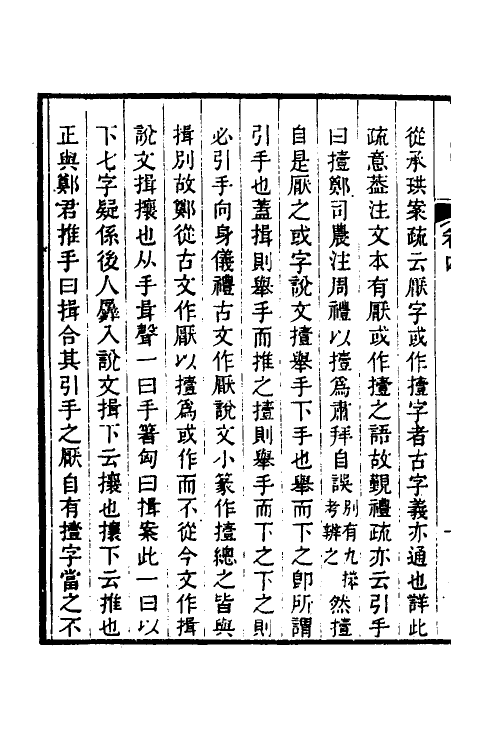 從承珙案疏云厭字或作撎字者古字義亦通也詳此
疏意葢注文本有厭或作撎之語故覲禮疏亦云引手
曰撎鄭司農注周禮以撎爲肅拜自誤別有九𢷎考辨之然撎
自是厭之或字說文撎舉手下手也舉而下之卽所謂
引手也蓋揖則舉手而推之撎則舉手而下之下之則
必引手向身儀禮古文作厭說文小篆作撎總之皆與
揖別故鄭從古文作厭以撎爲或作而不從今文作揖
說文揖攘也从手咠聲一曰手箸匈曰揖案此一曰以
下七字疑係後人羼入說文揖下云攘也攘下云推也
正與鄭君推手曰揖合其引手之厭自有撎字當之不
卷四